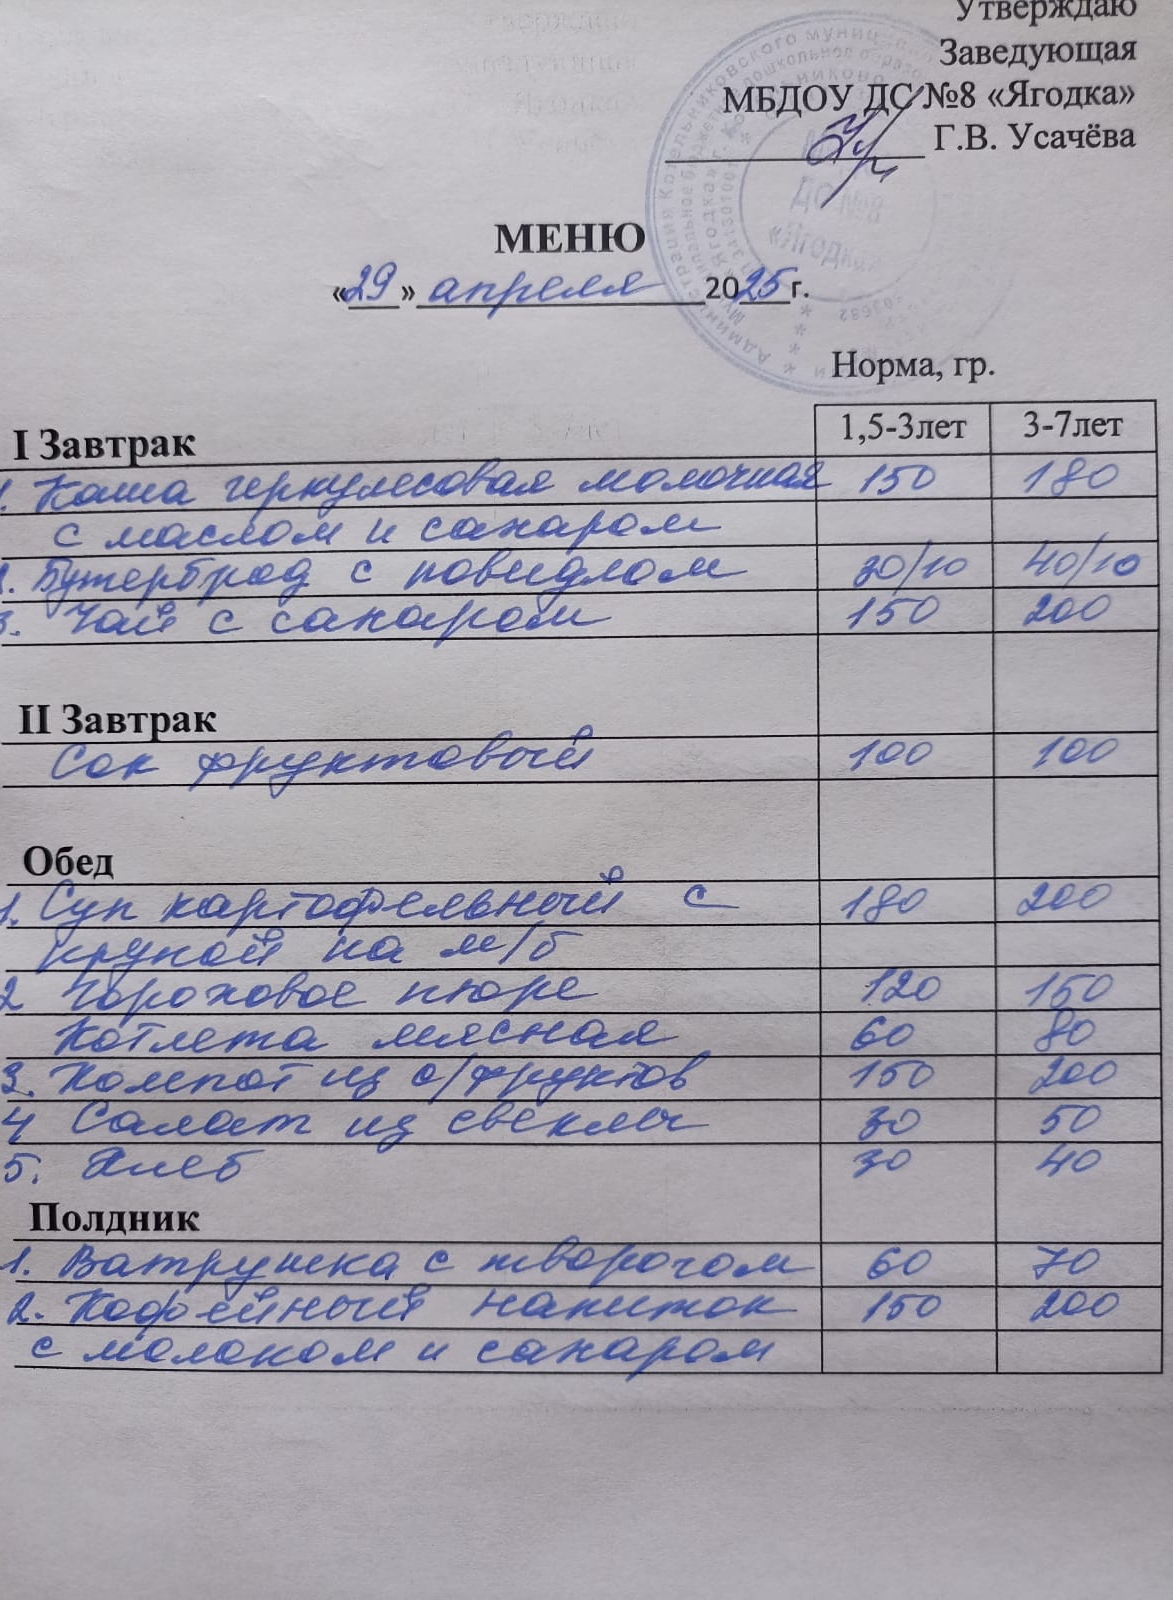 Утверждаю
Заведующая
МБДОУ ДС №8 «Ягодка»
Г.В. Усачёва
ДС №8
«Ягодка»
МЕНЮ
«29» апреля 2025 г.
Норма, гр.
I Завтрак 1,5-3лет 3-7лет
1. Каша геркулесовая молочная 150 180
с маслом и сахаром
2. Бутерброд с повидлом 30/10 40/10
3. Чай с сахаром 150 200
II Завтрак
Сок фруктовый 100 100
Обед
1. Суп картофельный с 180 200
крупой на м/б
2 Гороховое пюре 120 150
Котлета мясная 60 80
3. Компот из с/фруктов 150 200
4 Салат из свеклы 30 50
5. Хлеб 30 40
Полдник
1. Ватрушка с творогом 60 70
2. Кофейный напиток 150 200
с молоком и сахаром